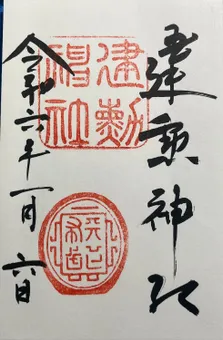 建勲神社
建勲
神社
令和六年一月六日